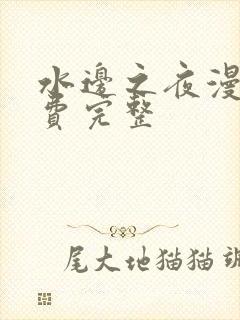 水邊之夜漫
費完整
尾大地猫猫